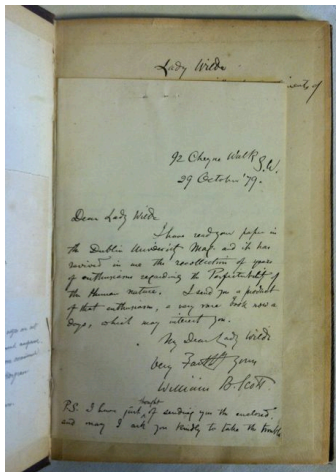 Lady Wilde
92 Cheyne Walk S.W.
29 October '79.
Dear Lady Wilde
I have read your paper in
the Dublin University Mag. and it has
revived in me the recollection of years
of enthusiasm regarding the Perfectability of
the Human nature. I send you a product
of that enthusiasm, a very rare book now a
days, which may interest you.
My Dear Lady Wilde
Very Faithfy yours
William B. Scott
P.S. I have just thought of sending you the enclosed
and may I ask you kindly to take the trouble